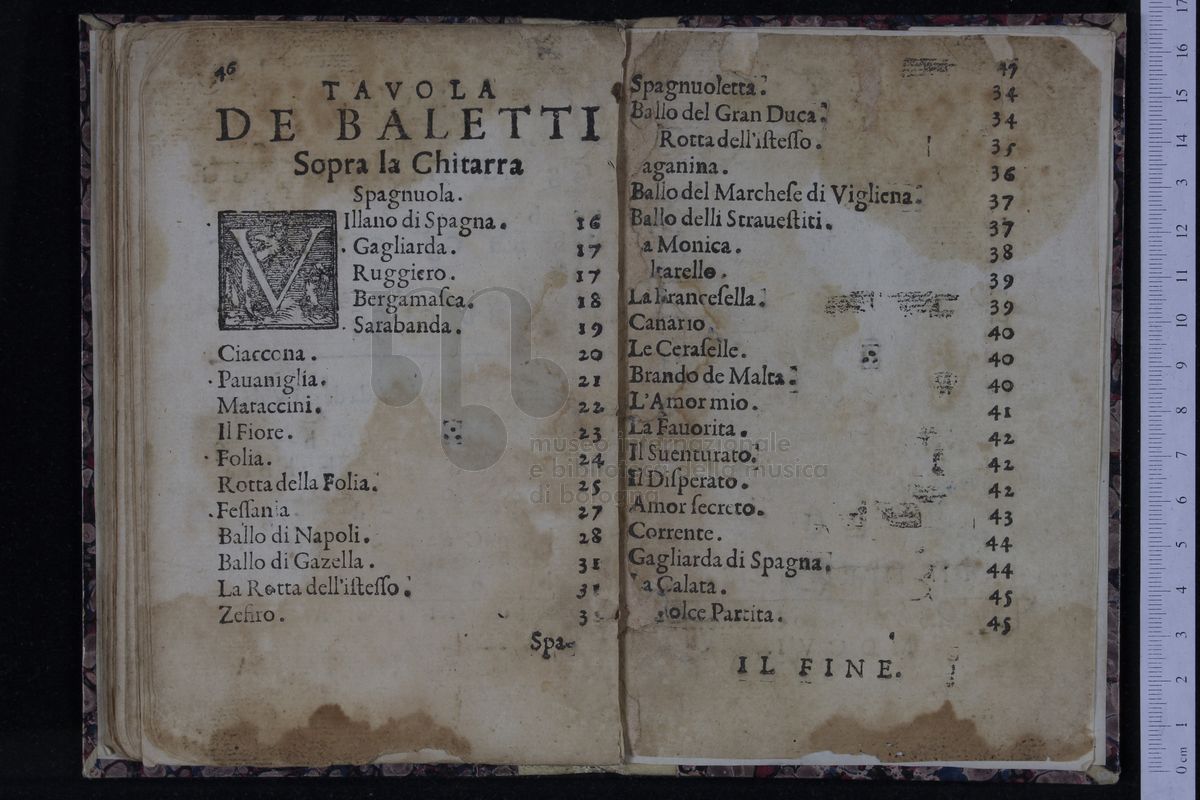 46
TAVOLA
DE BALETTI
Sopra la Chitarra
Spagnuola.
VIllano di Spagna. 16
Gagliarda. 17
Ruggiero. 17
Bergamaſca. 18
Sarabanda. 19
Ciaccona. 20
Pauaniglia. 21
Mataccini. 22
Il Fiore. 23
Folia. 24
Rotta della Folia. 25
Feſſania 27
Ballo di Napoli. 28
Ballo di Gazella. 31
La Rotta dell'iſteſſo.
Zefiro.
Spa-
47
Spagnuoletta. 34
Ballo del Gran Duca. 34
Rotta dell'iſteſſo. 35
aganina. 36
Ballo del Marcheſe di Vigliena. 37
Ballo delli Straueſtiti. 37
a Monica. 38
ltarello. 39
La Franceſella. 39
Canario. 40
Le Ceraſelle. 40
Brando de Malta. 40
L'Amor mio. 41
La Fauorita. 42
Il Suenturato. 42
Il Diſperato. 42
Amor ſecreto. 43
Corrente. 44
Gagliarda di Spagna. 44
a Calata. 45
olce Partita. 45
IL FINE.
museo internazionale
e biblioteca della musica
di bologna
0 cm 1 2 3 4 5 6 7 8 9 10 11 12 13 14 15 16 17